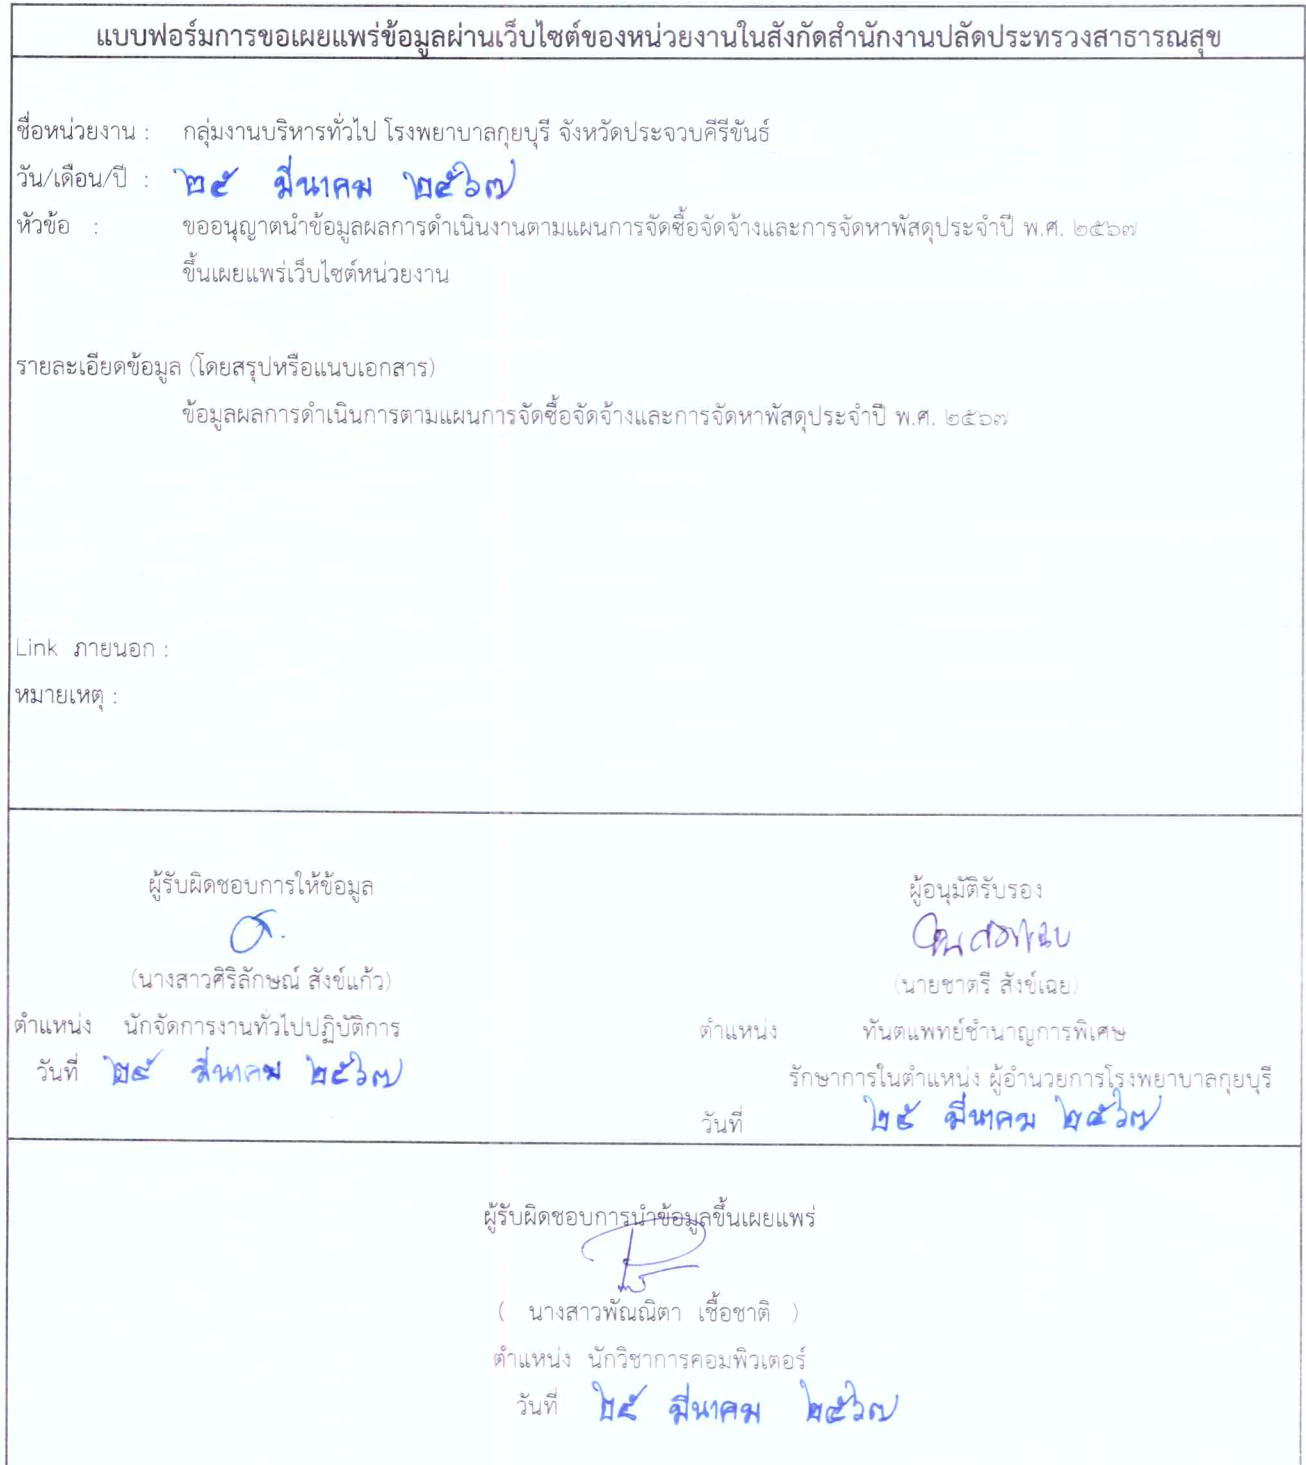 แบบฟอร์มการขอเผยแพร่ข้อมูลผ่านเว็บไซต์ของหน่วยงานในสังกัดสำนักงานปลัดประทรวงสาธารณสุข
ชื่อหน่วยงาน : กลุ่มงานบริหารทั่วไป โรงพยาบาลกุยบุรี จังหวัดประจวบคีรีขันธ์
วัน/เดือน/ปี : ๒๕ มีนาคม ๒๕๖๗
หัวข้อ : ขออนุญาตนำข้อมูลผลการดำเนินงานตามแผนการจัดซื้อจัดจ้างและการจัดหาพัสดุประจำปี พ.ศ. ๒๕๖๗
ขึ้นเผยแพร่เว็บไซต์หน่วยงาน
รายละเอียดข้อมูล (โดยสรุปหรือแนบเอกสาร)
ข้อมูลผลการดำเนินการตามแผนการจัดซื้อจัดจ้างและการจัดหาพัสดุประจำปี พ.ศ. ๒๕๖๗
Link ภายนอก :
หมายเหตุ :
ผู้รับผิดชอบการให้ข้อมูล
(นางสาวศิริลักษณ์ สังข์แก้ว)
ตำแหน่ง นักจัดการงานทั่วไปปฏิบัติการ
วันที่ ๒๕ มีนาคม ๒๕๖๗
ผู้อนุมัติรับรอง
(นายชาตรี สังข์เฉย)
ตำแหน่ง ทันตแพทย์ชำนาญการพิเศษ
รักษาการในตำแหน่ง ผู้อำนวยการโรงพยาบาลกุยบุรี
วันที่ ๒๕ มีนาคม ๒๕๖๗
ผู้รับผิดชอบการนำข้อมูลขึ้นเผยแพร่
( นางสาวพัณณิตา เชื้อชาติ )
ตำแหน่ง นักวิชาการคอมพิวเตอร์
วันที่ ๒๕ มีนาคม ๒๕๖๗